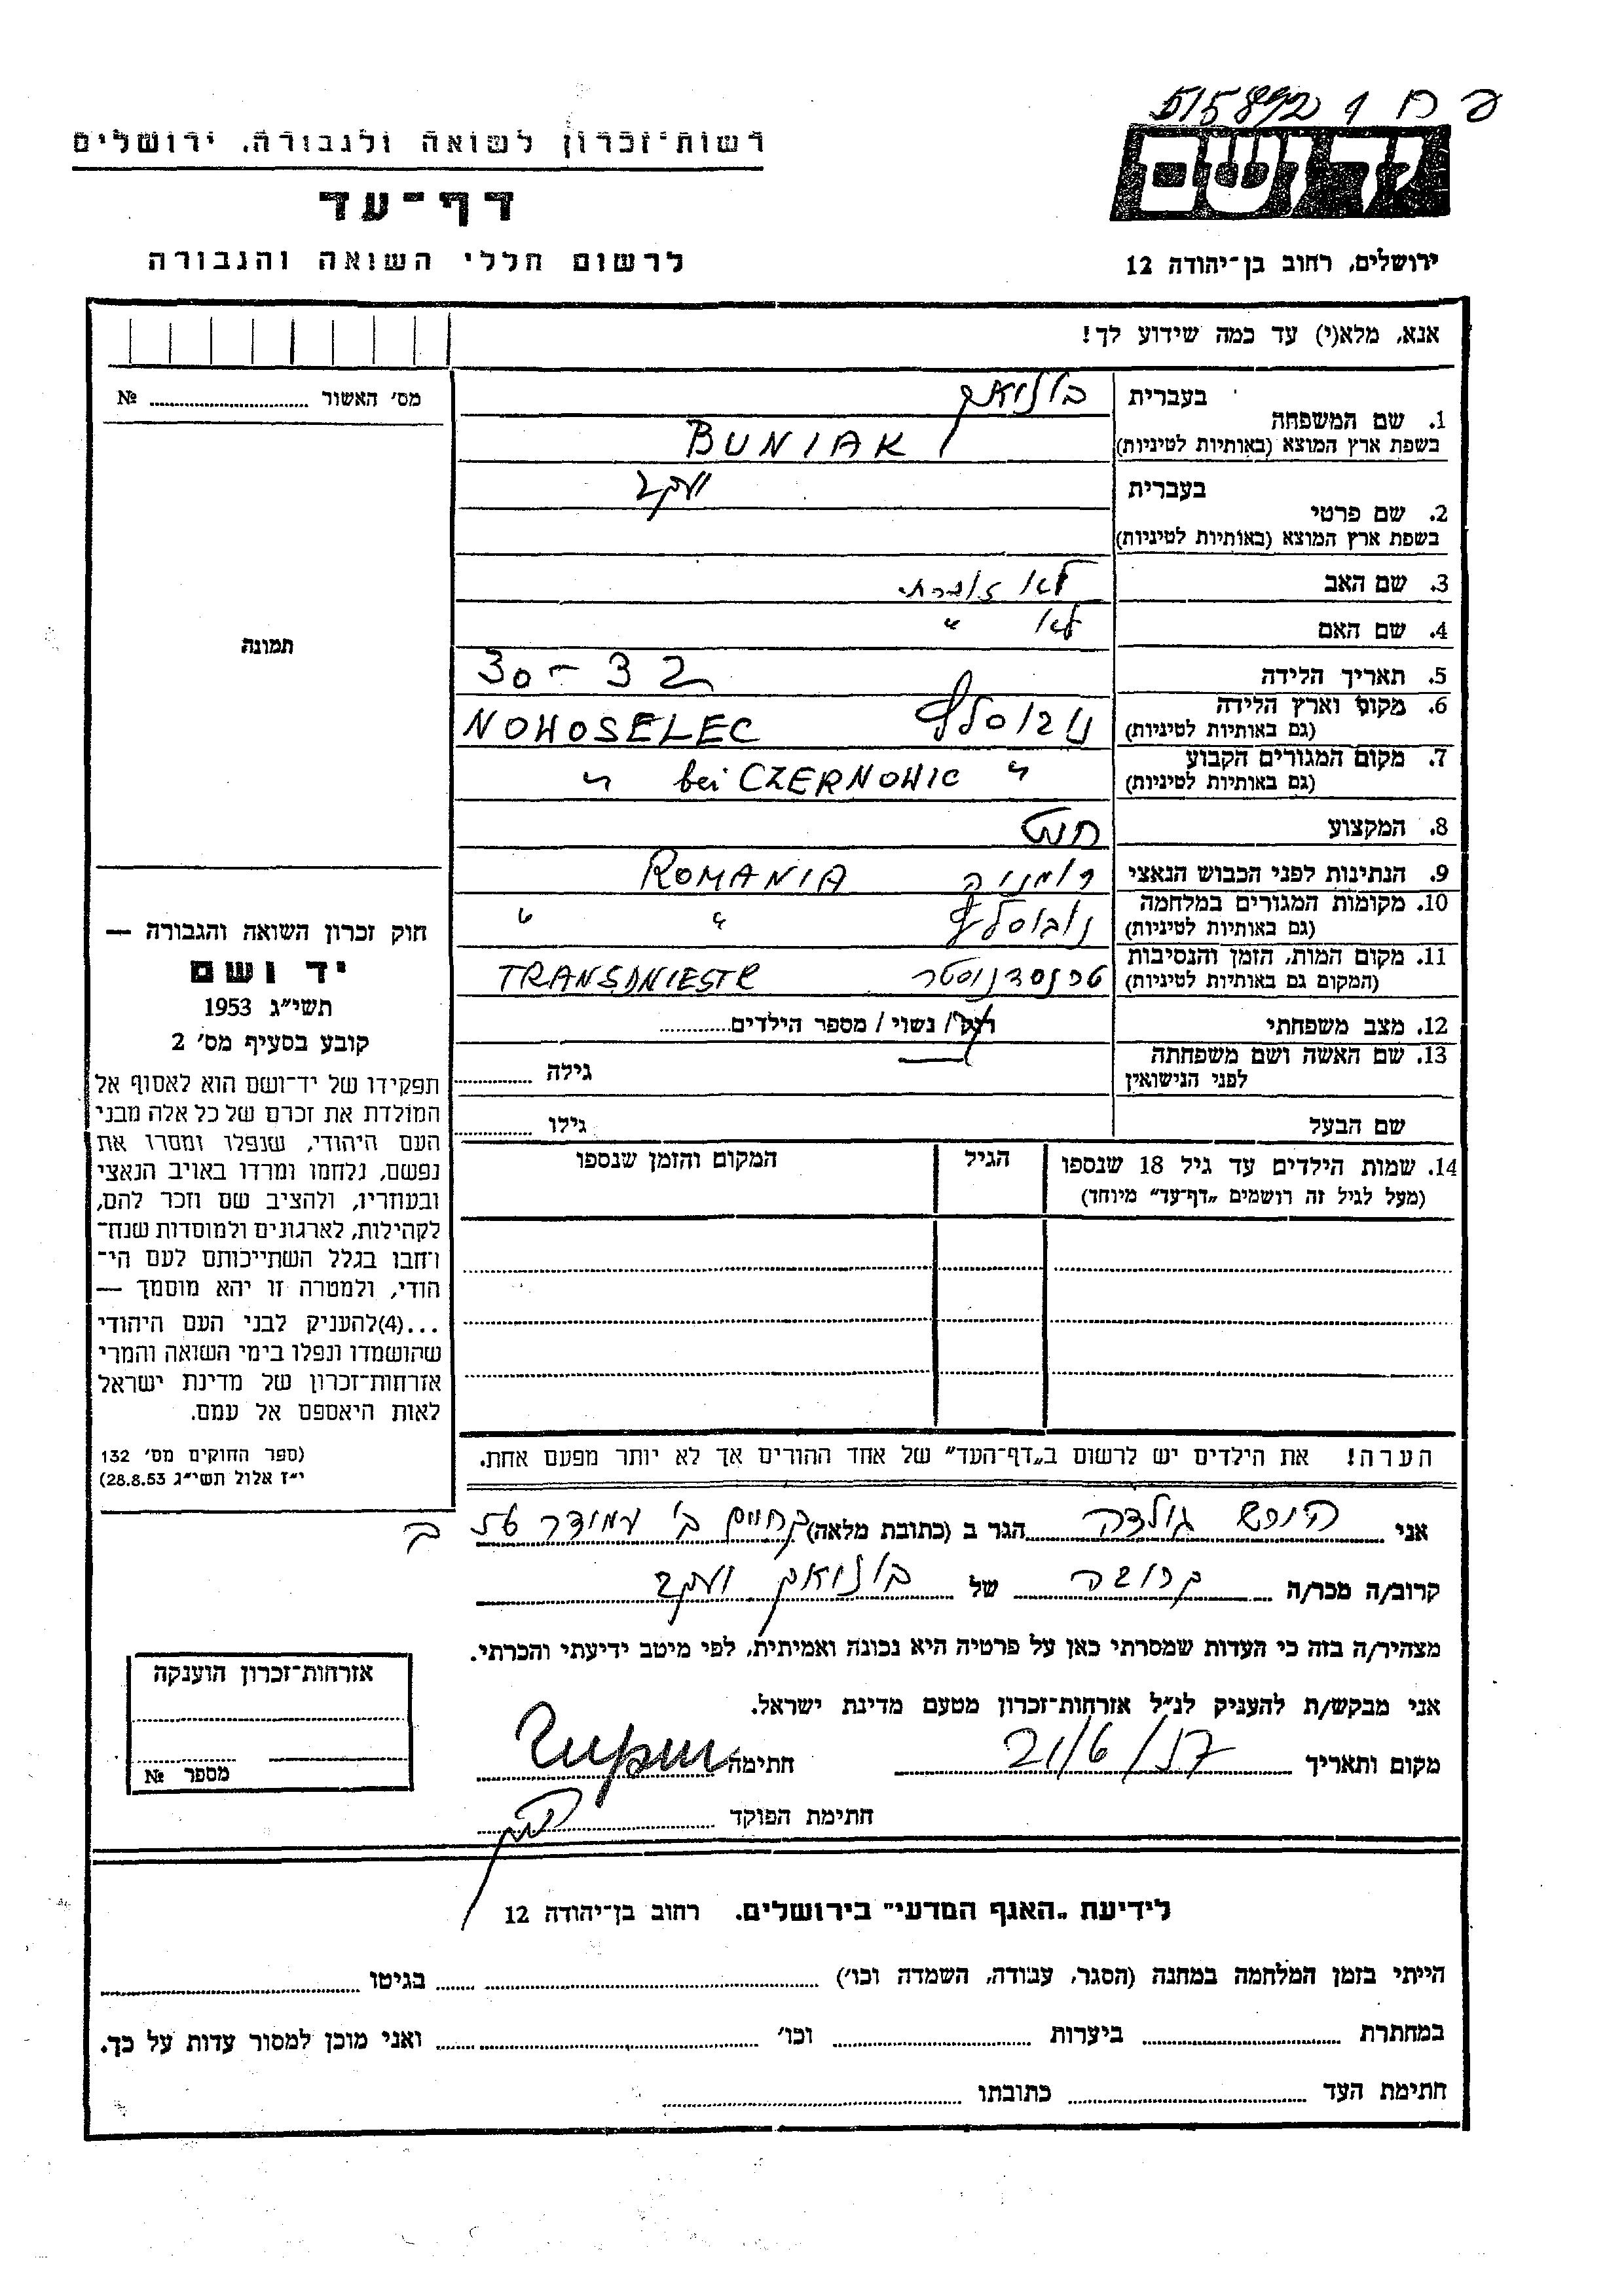 פ ח ו 515892
יד ושם
רשות־זכרון לשואה ולגבורה, ירושלים
דף־עד
ירושלים, רחוב בן־יהודה 12
לרשום חללי השואה והגבורה
אנא, מלא(י) עד כמה שידוע לך!
מס׳ האשור № ........
1. שם המשפחה
בעברית בוניאק
בשפת ארץ המוצא (באותיות לטיניות) BUNIAK
2. שם פרטי
בעברית יעקב
בשפת ארץ המוצא (באותיות לטיניות)
3. שם האב לא זוכרתי
4. שם האם לא "
5. תאריך הלידה 30-32
6. מקום וארץ הלידה (גם באותיות לטיניות) נובוסלץ NOWOSELEC
7. מקום המגורים הקבוע (גם באותיות לטיניות) " bei CZERNOWIC "
8. המקצוע חייט
9. הנתינות לפני הכבוש הנאצי רומניה ROMANIA
10. מקומות המגורים במלחמה (גם באותיות לטיניות) נובוסלץ " "
11. מקום המות, הזמן והנסיבות (המקום גם באותיות לטיניות) טרנסדניסטר TRANSDNIESTR
12. מצב משפחתי רווק / נשוי / מספר הילדים........
13. שם האשה ושם משפחתה לפני הנישואין גילה ........
שם הבעל גילו ........
14. שמות הילדים עד גיל 18 שנספו הגיל המקום והזמן שנספו
(מעל לגיל זה רושמים „דף־עד" מיוחד)
תמונה
חוק זכרון השואה והגבורה —
יד ושם
תשי״ג 1953
קובע בסעיף מס׳ 2
תפקידו של יד־ושם הוא לאסוף אל
המולדת את זכרם של כל אלה מבני
העם היהודי, שנפלו ומסרו את
נפשם, נלחמו ומרדו באויב הנאצי
ובעוזריו, ולהציב שם וזכר להם,
לקהילות, לארגונים ולמוסדות שנח־
רבו בגלל השתייכותם לעם הי־
הודי, ולמטרה זו יהא מוסמך —
...(4)להעניק לבני העם היהודי
שהושמדו ונפלו בימי השואה והמרי
אזרחות־זכרון של מדינת ישראל
לאות היאספם אל עמם.
(ספר החוקים מס׳ 132
י״ז אלול תשי״ג 28.8.53)
הערה! את הילדים יש לרשום ב„דף־העד" של אחד ההורים אך לא יותר מפעם אחת.
אני הירש גולדה הגר ב (כתובת מלאה) ק חיים ב׳ עמודר 56 ב
קרוב/ה מכר/ה קרובה של בוניאק יעקב
מצהיר/ה בזה כי העדות שמסרתי כאן על פרטיה היא נכונה ואמיתית, לפי מיטב ידיעתי והכרתי.
אני מבקש/ת להעניק לנ״ל אזרחות־זכרון מטעם מדינת ישראל.
מקום ותאריך 21/6/57 חתימה
חתימת הפוקד
אזרחות־זכרון הוענקה
מספר №
לידיעת „האגף המדעי" בירושלים. רחוב בן־יהודה 12
הייתי בזמן המלחמה במחנה (הסגר, עבודה, השמדה וכו׳) ........ בגיטו ........
במחתרת ........ ביערות ........ וכו׳ ........ ואני מוכן למסור עדות על כך.
חתימת העד ........ כתובתו ........